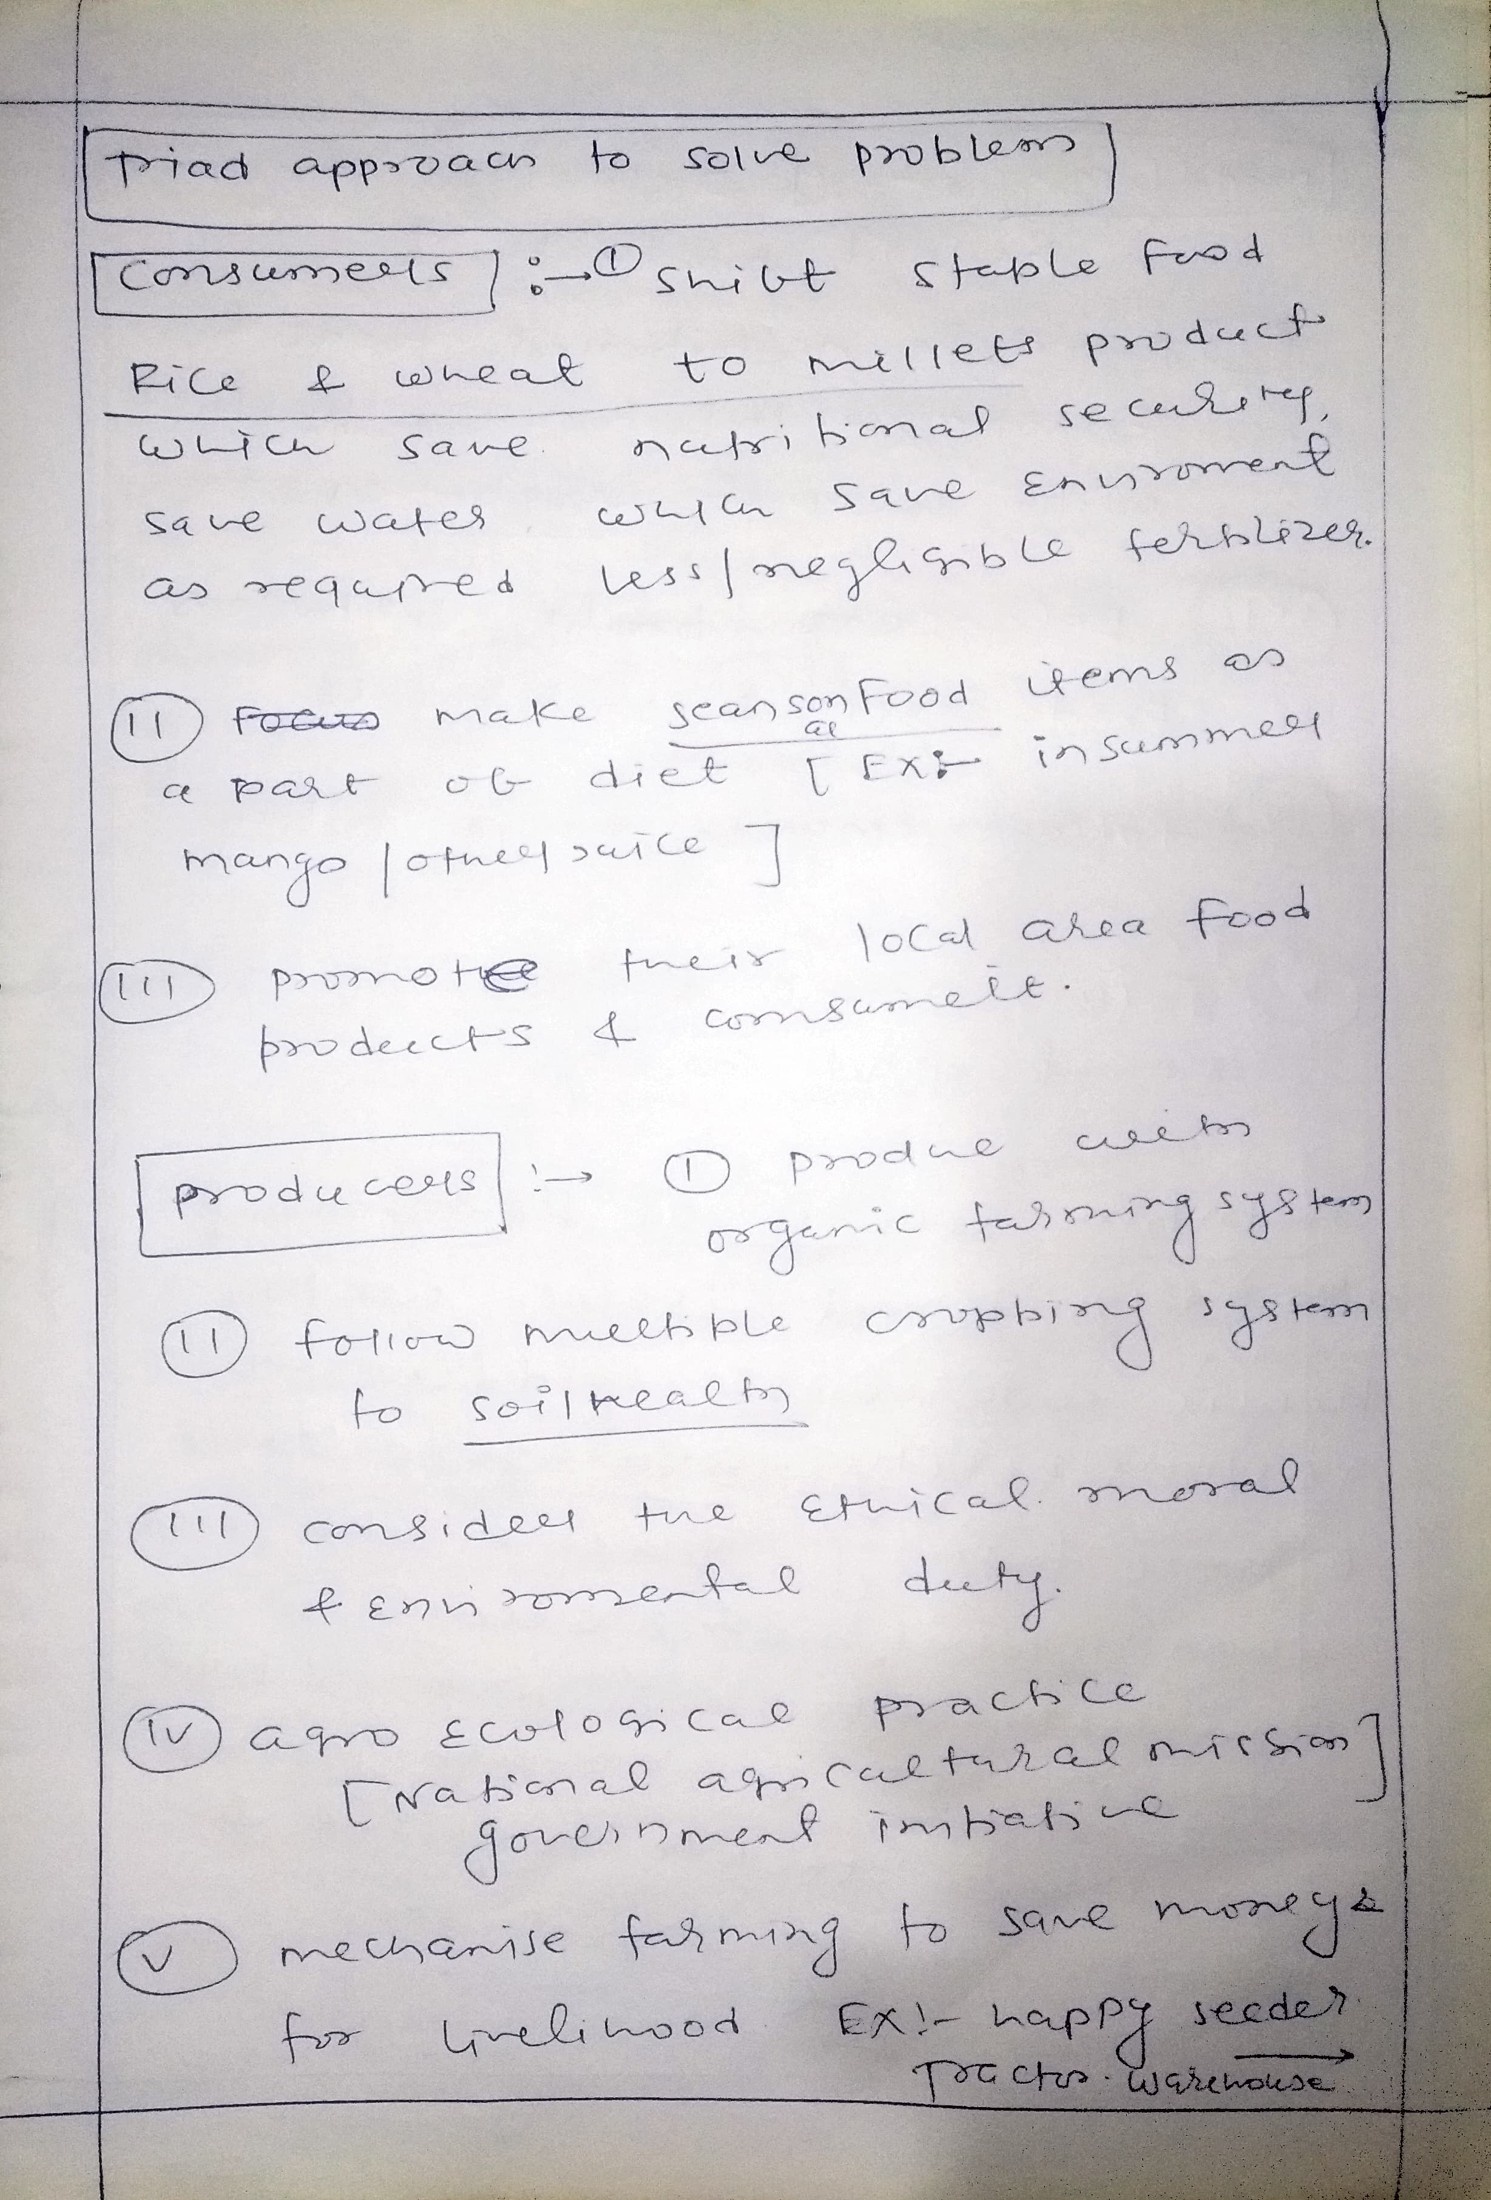 Triad approach to solve problem
Consumers :→ ① Shift staple food
Rice & wheat to millets product
which save nutritional security,
save water which save Enviroment
as required less/negligible fertilizer.
(II) Focus make seansonal Food items as
a part of diet [EX:- in summer
mango / other juice]
(III) promote their local area food
products & consume it.
producers :→ ① produce with
organic farming system
(II) follow multiple cropping system
to soil Health
(III) consider the Ethical moral
& Enviromental duty.
(IV) agro Ecological practice
[National agricultural mission]
government initiative
(V) mechanise farming to save money &
for livelihood EX:- happy seeder
Tractor. Warehouse